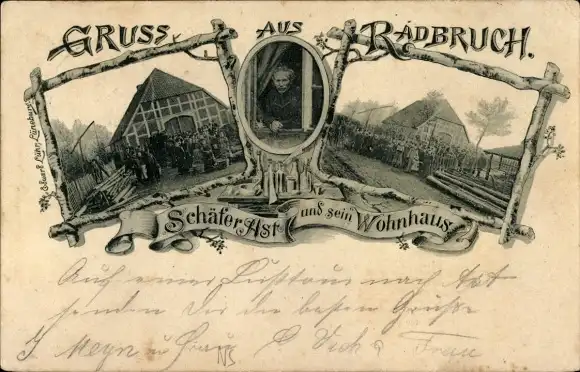 GRUSS AUS RADBRUCH.
Schäfer Ast und sein Wohnhaus
Auf einer Lusttour nach Ast
senden Dir die besten Grüße
Meyn u Frau Frau